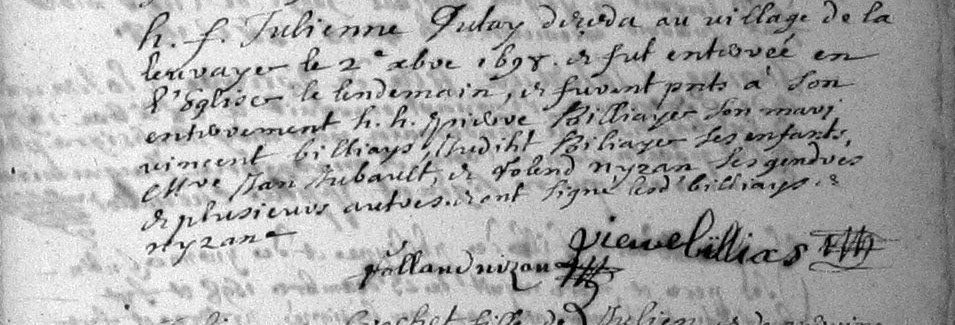 h. f. Julienne Dulay déceda au village de la
le 2e xbre 1698. & fut enterrée en
l'Eglise le lendemain, & furent pnts à son
enterrement h. h. pierre Billiays son mari
vincent billiays Judiht Biliays ses enfants,
Mre Jan Aubault, & Rolend nyzan ses gendres
& plusieurs autres. & ont signé lesd. billiays. &
nyzan
pierre billias
rolland nizan
fille de Julien